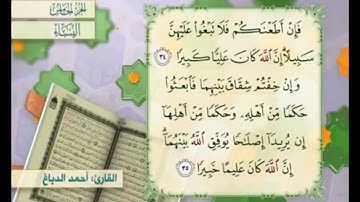 الجزء الخامس
النساء
فَإِنْ أَطَعْنَكُمْ فَلَا تَبْغُوا۟ عَلَيْهِنَّ
سَبِيلًا ۗ إِنَّ ٱللَّهَ كَانَ عَلِيًّا كَبِيرًا ٣٤
وَإِنْ خِفْتُمْ شِقَاقَ بَيْنِهِمَا فَٱبْعَثُوا۟
حَكَمًا مِّنْ أَهْلِهِۦ وَحَكَمًا مِّنْ أَهْلِهَآ
إِن يُرِيدَآ إِصْلَـٰحًا يُوَفِّقِ ٱللَّهُ بَيْنَهُمَآ ۗ
إِنَّ ٱللَّهَ كَانَ عَلِيمًا خَبِيرًا ٣٥
القارئ: أحمد الدباغ